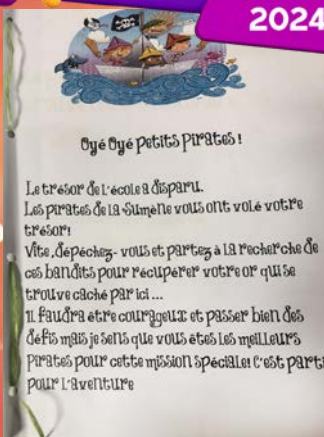 2024
Oyé Oyé petits Pirates !
Le trésor de l'école a disparu.
Les pirates de la Sumène vous ont volé votre
trésor!
Vite, dépéchez-vous et partez à la recherche de
ces bandits pour récupérer votre or qui se
trouve caché par ici ...
Il faudra être courageux et passer bien des
défis mais je sens que vous êtes les meilleurs
pirates pour cette mission spéciale! C'est parti
pour l'aventure